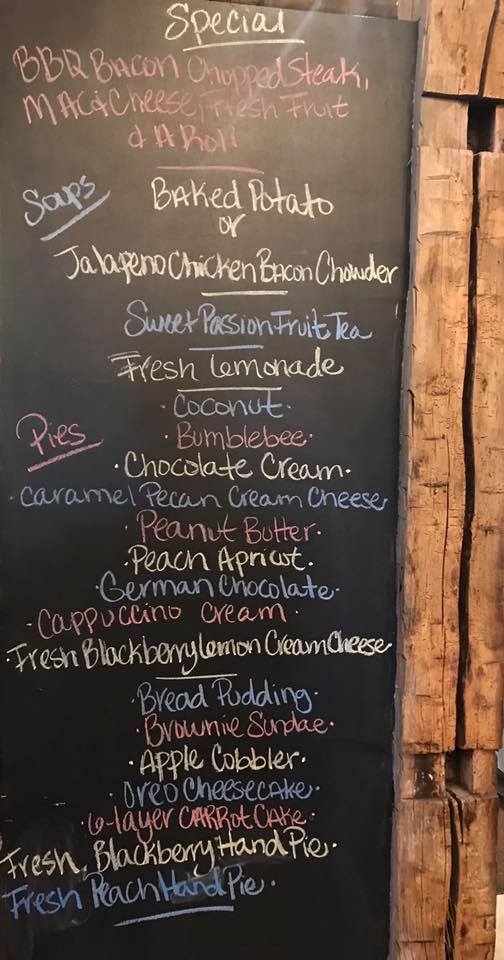 Special
BBQ Bacon Chopped Steak,
Mac & Cheese, Fresh Fruit
& A Roll
Soups
Baked Potato
or
Jalapeno Chicken Bacon Chowder
Sweet Passion Fruit Tea
Fresh Lemonade
Pies
·Coconut·
·Bumblebee·
·Chocolate Cream·
·Caramel Pecan Cream Cheese·
·Peanut Butter·
·Peach Apricot·
·German Chocolate·
·Cappuccino Cream·
·Fresh Blackberry Lemon Cream Cheese
·Bread Pudding·
·Brownie Sundae·
·Apple Cobbler·
·Oreo Cheesecake·
·6-layer Carrot Cake·
Fresh, Blackberry Hand Pie·
Fresh Peach Hand Pie·